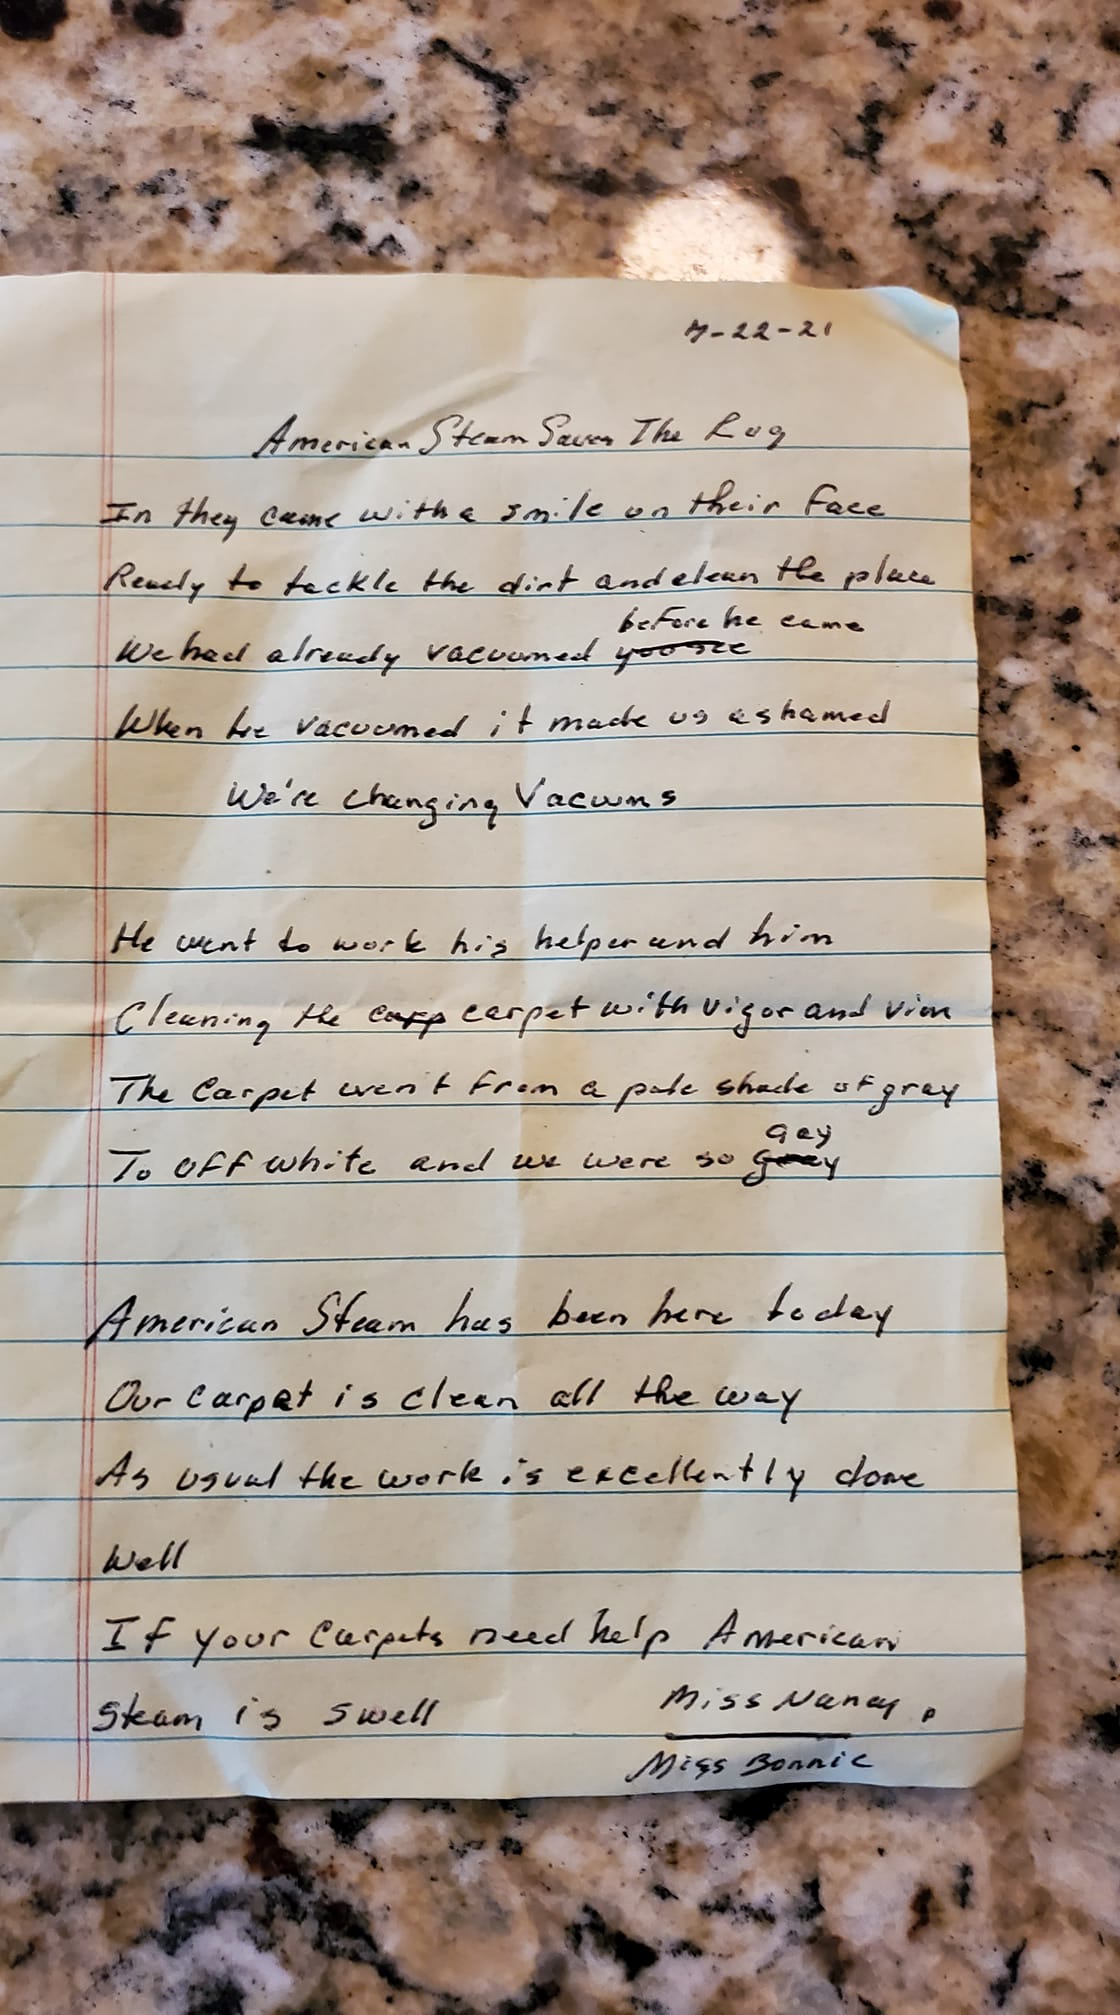 7-22-21
American Steam Saves The Rug
In they came with a smile on their face
Ready to tackle the dirt and clean the place
before he came
We had already vacuumed you see
When he vacuumed it made us ashamed
We're changing Vacuums
He went to work his helper and him
Cleaning the carp carpet with vigor and vim
The Carpet went from a pale shade of gray
gay
To off white and we were so gray
American Steam has been here today
Our carpet is clean all the way
As usual the work is excellently done
Well
If your carpets need help American
Steam is swell
Miss Nancy
Miss Bonnie